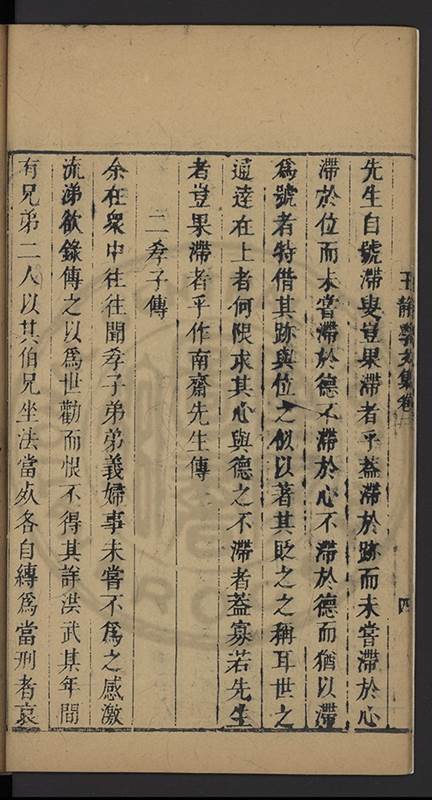 王靜學文集卷二 四
先生自號滯叟豈果滯者乎蓋滯於跡而未嘗滯於心
滯於位而未嘗滯於德不滯於心不滯於德而猶以滯
爲號者特借其跡與位之似以著其貶之之稱耳世之
通逹在上者何限求其心與德之不滯者蓋寡若先生
者豈果滯者乎作南齋先生傳
二孝子傳
余在衆中往往聞孝子弟弟義婦事未嘗不爲之感激
流涕欲錄傳之以爲世勸而恨不得其詳洪武某年間
有兄弟二人以其伯兄坐法當死各自縳爲當刑者哀